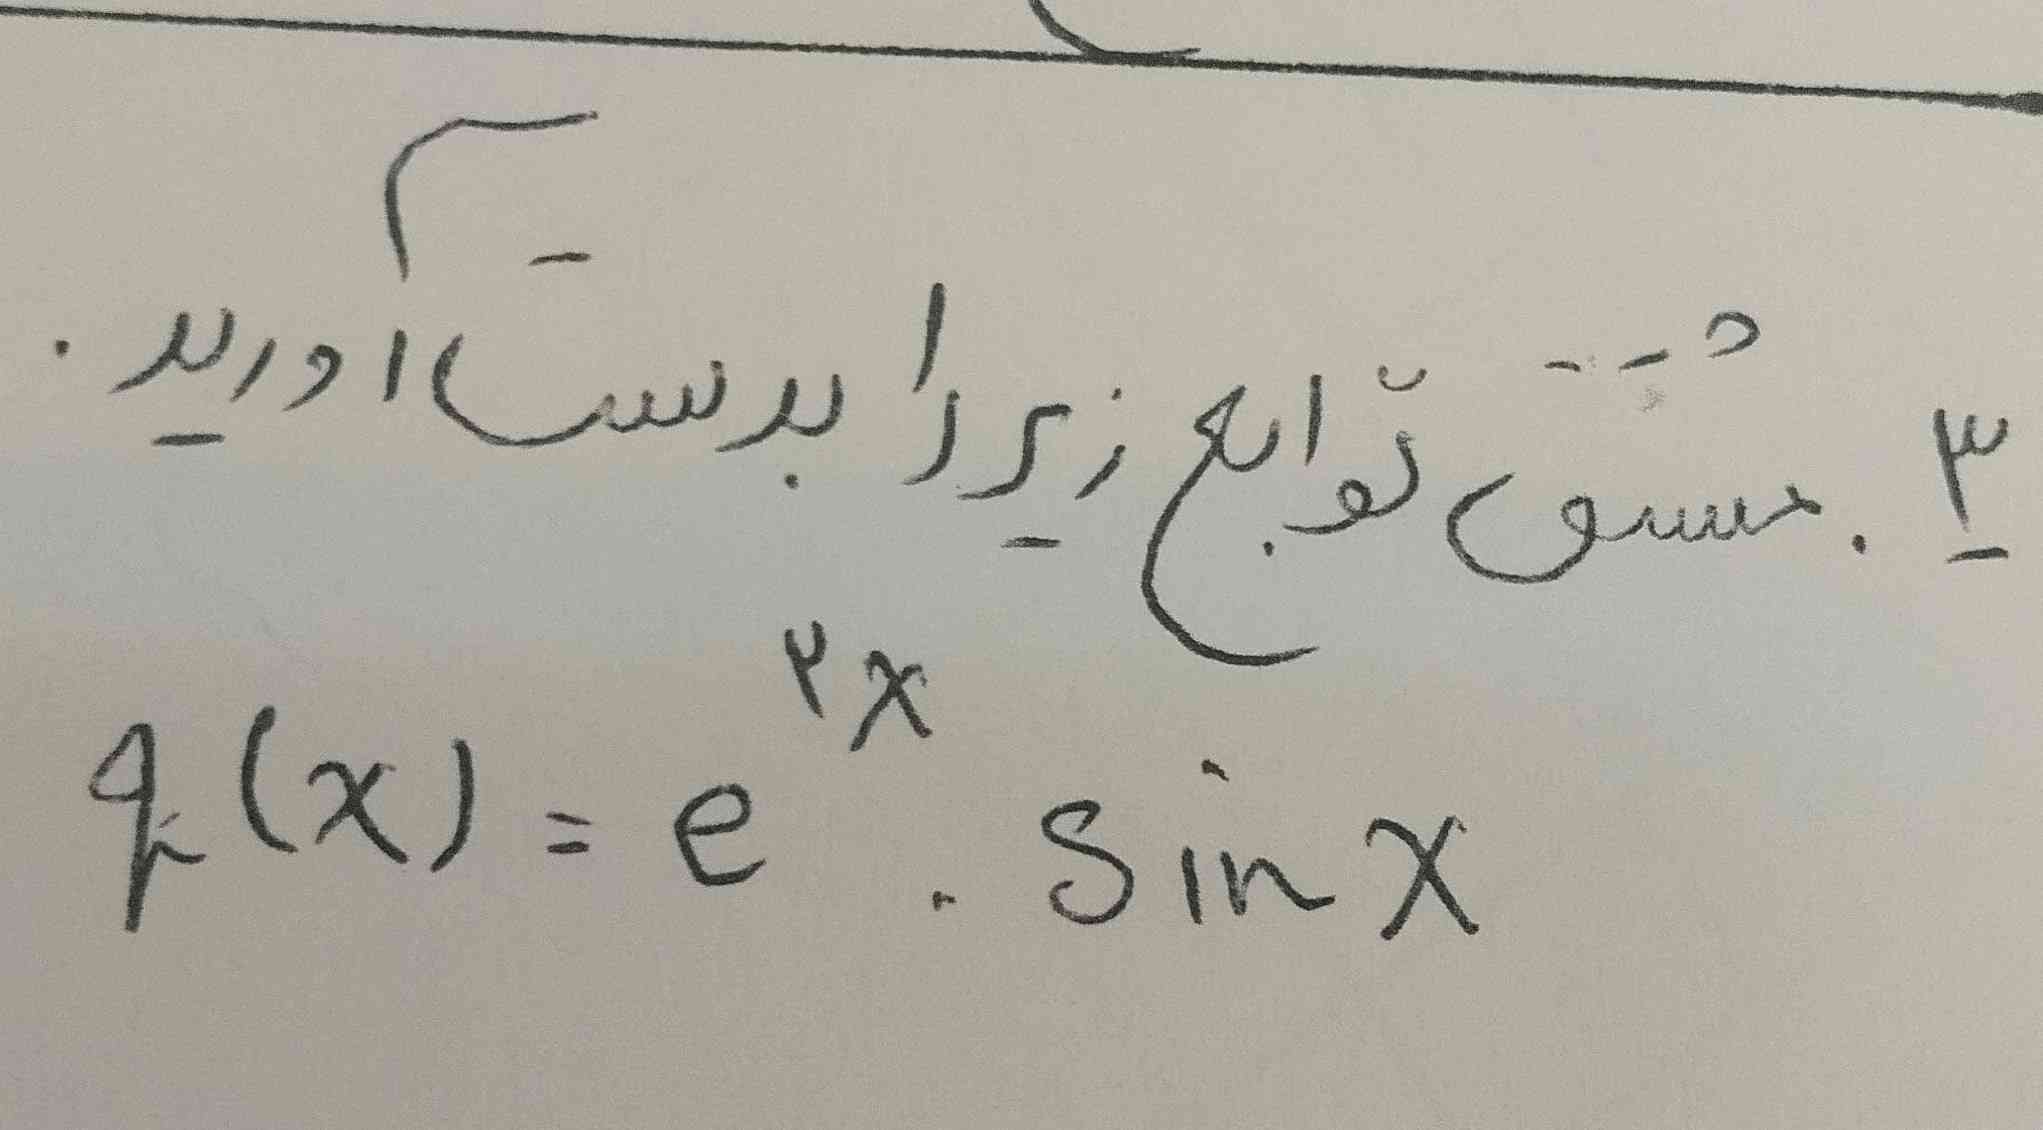 ۳. مشتق توابع زیر را بدست آورید.
f(x) = e^۲x . sin x